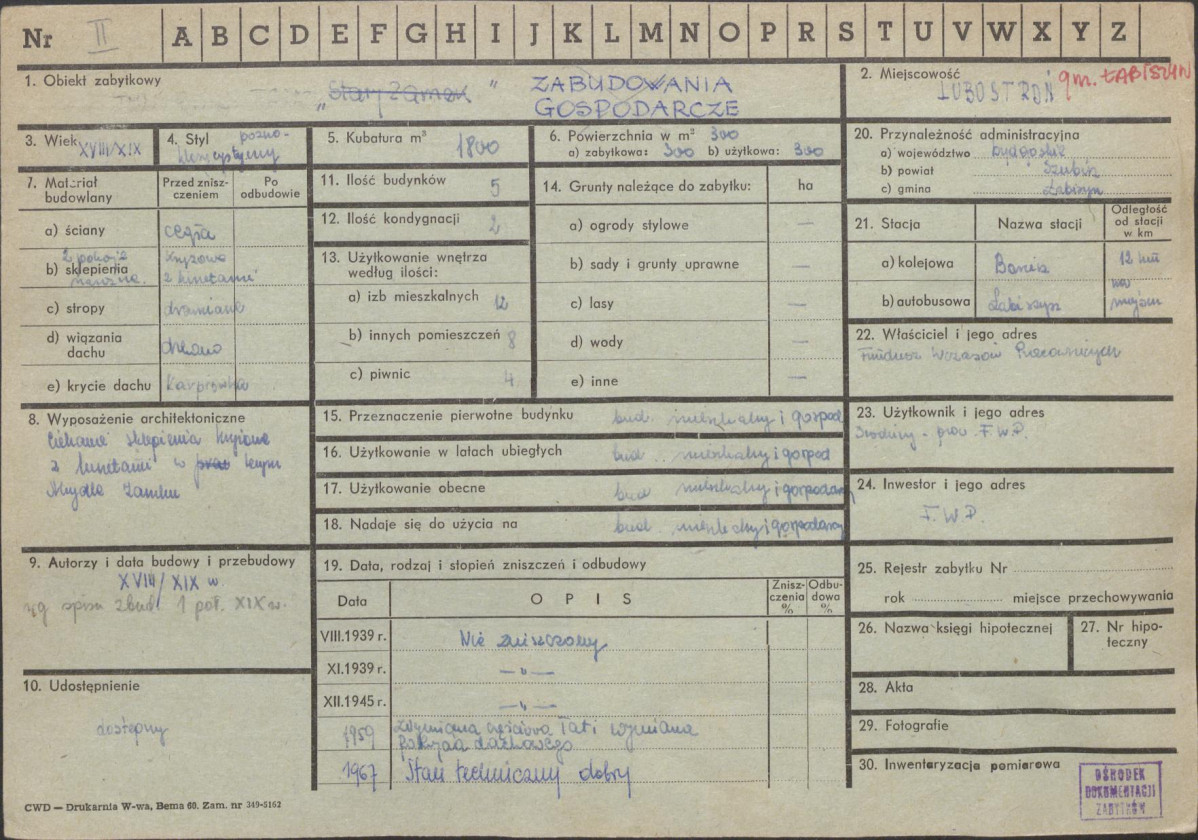 Nr II A B C D E F G H I J K L M N O P R S T U V W X Y Z
1. Obiekt zabytkowy
„Stary Zamek" ZABUDOWANIA
GOSPODARCZE
2. Miejscowość
LUBOSTROŃ gm. ŁABISZYN
3. Wiek
XVIII/XIX
4. Styl
późno-
klasycystyczny
5. Kubatura m³ 1800
6. Powierzchnia w m² 300
a) zabytkowa: 300 b) użytkowa: 300
7. Materiał
budowlany
Przed znisz-
czeniem
Po
odbudowie
a) ściany cegła
2 pokoje
b) sklepienia krzyżowe
z lunetami
c) stropy drewniane
d) wiązania
dachu drewno
e) krycie dachu karpiówka
8. Wyposażenie architektoniczne
Ciekawe sklepienia krzyżowe
z lunetami w lewym
skrzydle zamku
9. Autorzy i data budowy i przebudowy
XVIII/XIX w.
wg spisu zbud. 1 poł. XIX w.
10. Udostępnienie
dostępny
11. Ilość budynków 5
12. Ilość kondygnacji 2
13. Użytkowanie wnętrza
według ilości:
a) izb mieszkalnych 12
b) innych pomieszczeń 8
c) piwnic 4
14. Grunty należące do zabytku: ha
a) ogrody stylowe —
b) sady i grunty uprawne —
c) lasy —
d) wody —
e) inne —
15. Przeznaczenie pierwotne budynku bud. mieszkalny i gospod
16. Użytkowanie w latach ubiegłych bud. mieszkalny i gospod
17. Użytkowanie obecne bud mieszkalny i gospodarczy
18. Nadaje się do użycia na bud. mieszkalny i gospodarczy
19. Data, rodzaj i stopień zniszczeń i odbudowy
Data O P I S
Znisz-
czenia
%
Odbu-
dowa
%
VIII.1939 r. Nie zniszczony
XI.1939 r. —„—
XII.1945 r. —„—
1959 Wymiana częściowa łat i wymiana
pokrycia dachowego
1967 Stan techniczny dobry
20. Przynależność administracyjna
a) województwo bydgoskie
b) powiat Szubin
c) gmina Łabiszyn
21. Stacja Nazwa stacji
Odległość
od stacji
w km
a) kolejowa Barcin 12 km
b) autobusowa Łabiszyn na
miejscu
22. Właściciel i jego adres
Fundusz Wczasów Pracowniczych
23. Użytkownik i jego adres
F.W.P.
24. Inwestor i jego adres
F.W.P.
25. Rejestr zabytku Nr
rok miejsce przechowywania
26. Nazwa księgi hipotecznej
27. Nr hipo-
teczny
28. Akta
29. Fotografie
30. Inwentaryzacja pomiarowa
OŚRODEK
DOKUMENTACJI
ZABYTKÓW
CWD — Drukarnia W-wa, Bema 60. Zam. nr 349-5162